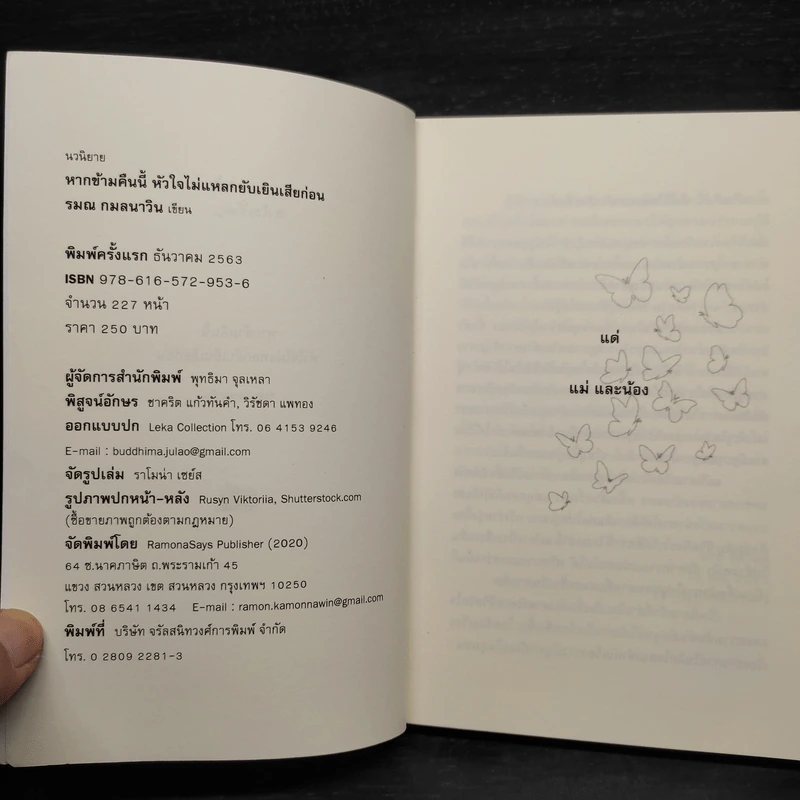 นวนิยาย
หากข้ามคืนนี้ หัวใจไม่แหลกยับเยินเสียก่อน
รมณ กมลนาวิน เขียน
พิมพ์ครั้งแรก ธันวาคม 2563
ISBN 978-616-572-953-6
จำนวน 227 หน้า
ราคา 250 บาท
ผู้จัดการสำนักพิมพ์ พุทธิมา จุลเหลา
พิสูจน์อักษร ชาคริต แก้วทันคำ, วิรัชดา แพทอง
ออกแบบปก Leka Collection โทร. 06 4153 9246
E-mail : buddhima.julao@gmail.com
จัดรูปเล่ม ราโมน่า เซย์ส
รูปภาพปกหน้า-หลัง Rusyn Viktoriia, Shutterstock.com
(ซื้อขายภาพถูกต้องตามกฎหมาย)
จัดพิมพ์โดย RamonaSays Publisher (2020)
64 ซ.นาคภาษิต ถ.พระรามเก้า 45
แขวง สวนหลวง เขต สวนหลวง กรุงเทพฯ 10250
โทร. 08 6541 1434 E-mail : ramon.kamonnawin@gmail.com
พิมพ์ที่ บริษัท จรัลสนิทวงศ์การพิมพ์ จำกัด
โทร. 0 2809 2281-3
แด่
แม่ และน้อง